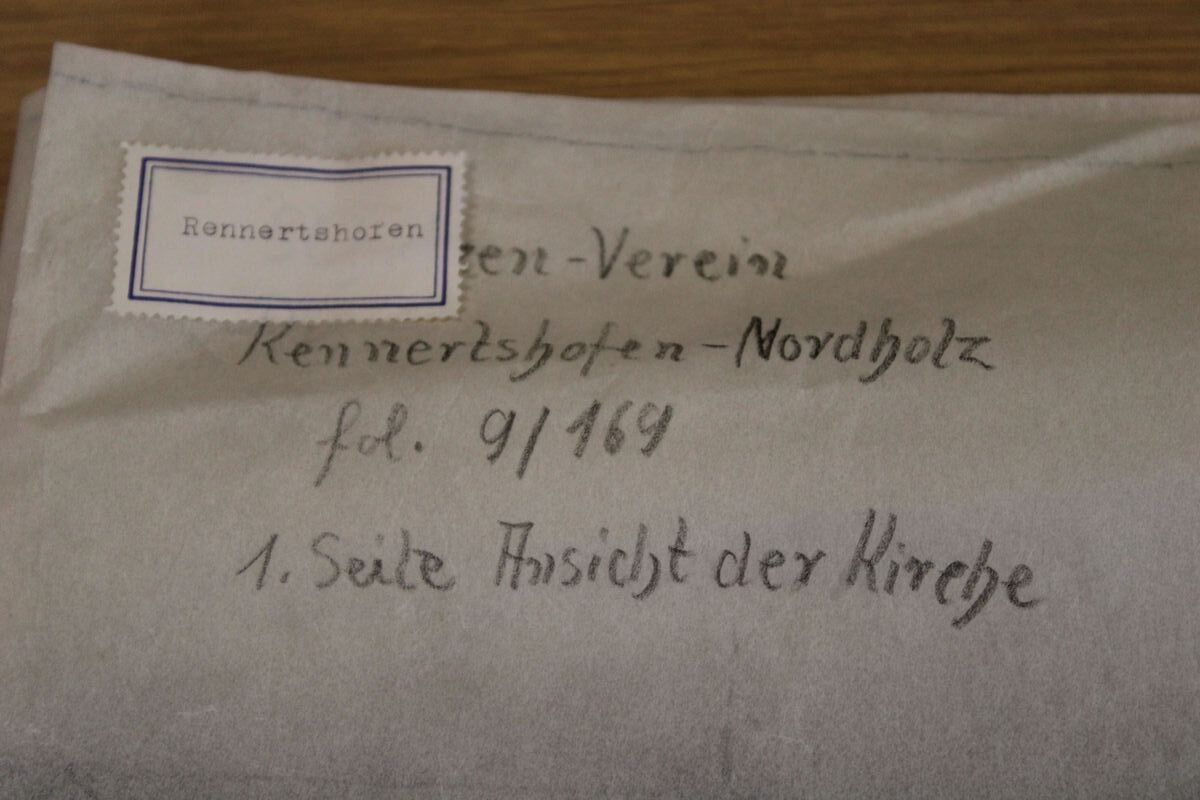 Rennertshofen
zen-Verein
Rennertshofen-Nordholz
fol. 9/169
1. Seite Ansicht der Kirche